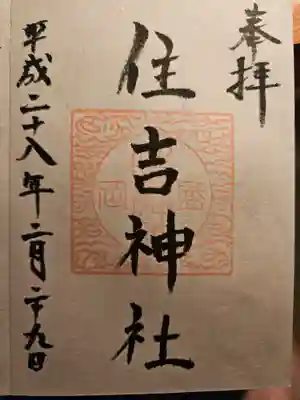 奉拝
住吉神社
平成二十八年二月二十九日